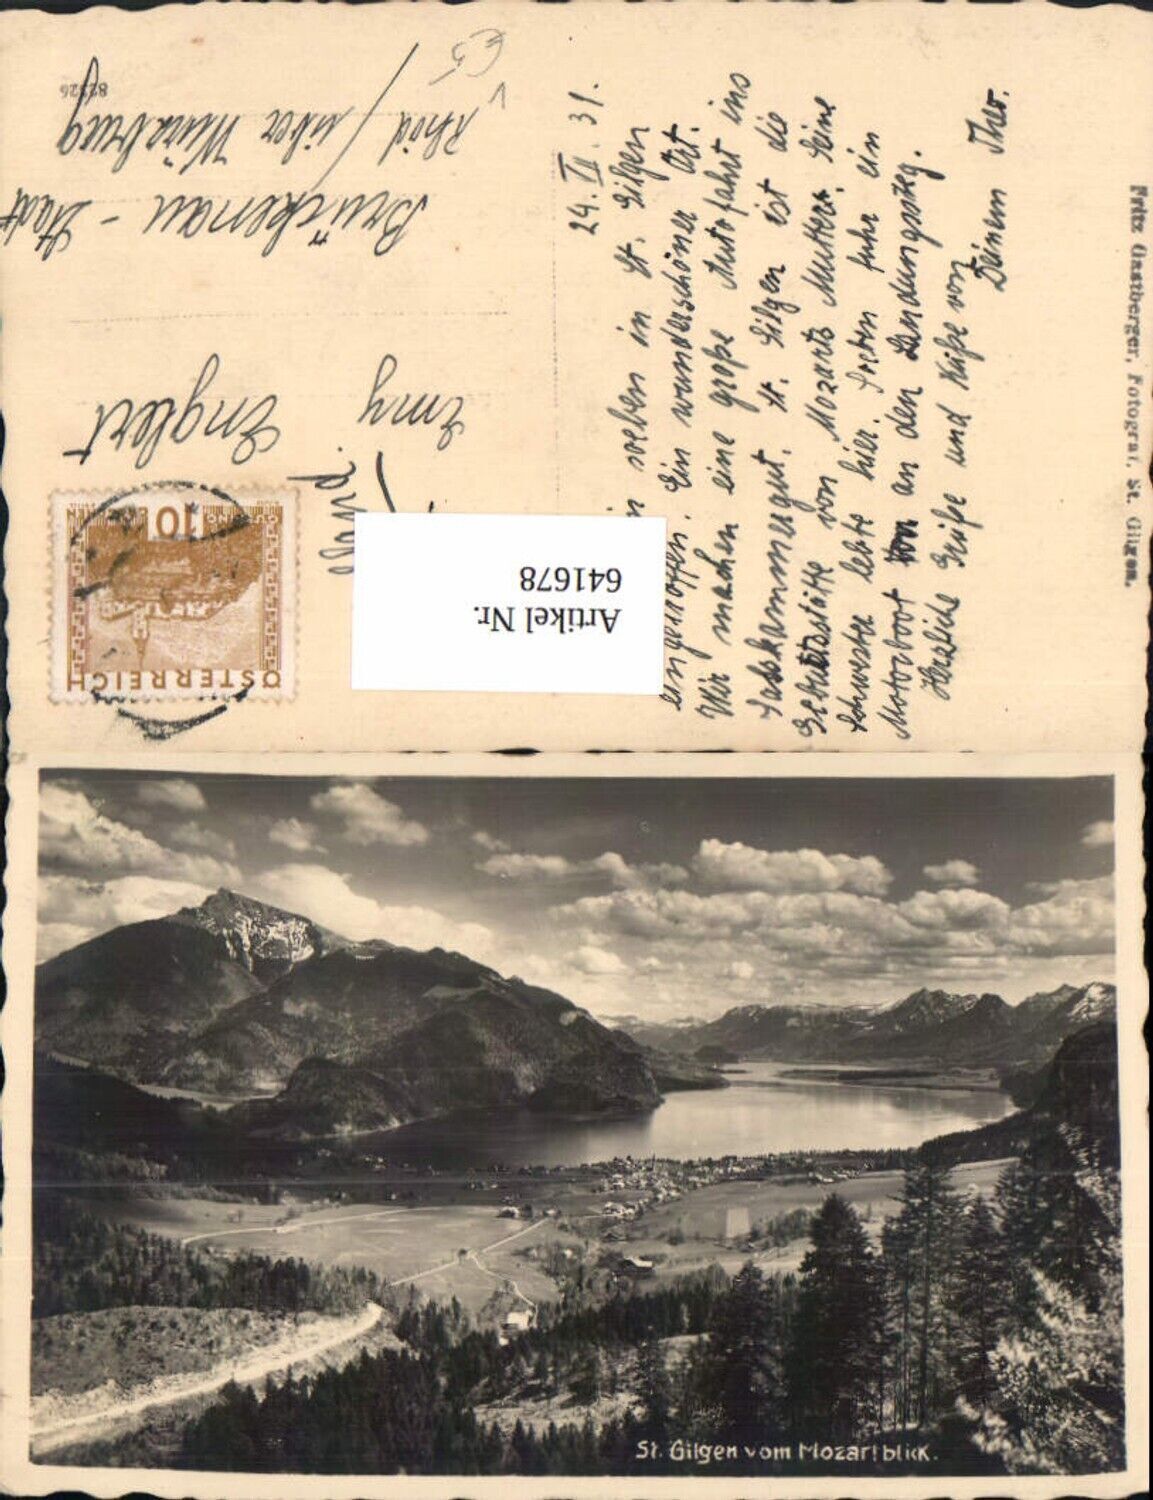 24. VII. 31.
soeben in St. Gilgen
eingetroffen. Ein wunderschöner Ort.
Wir machen eine große Autofahrt ins
Salzkammergut. St. Gilgen ist die
Geburtsstätte von Mozarts Mutter. Seine
Schwester lebte hier. Soeben fuhr ein
Motorboot von an den Landungssteg.
Herzliche Grüße und Küße von
Deinem Theo.
Fritz Gastberger, Fotograf, St. Gilgen.
ÖSTERREICH
10
Artikel Nr.
641678
Emmy
Englert
Brückenau - Stadt
Rhöd / über Würzburg
82326
St. Gilgen vom Mozartblick.